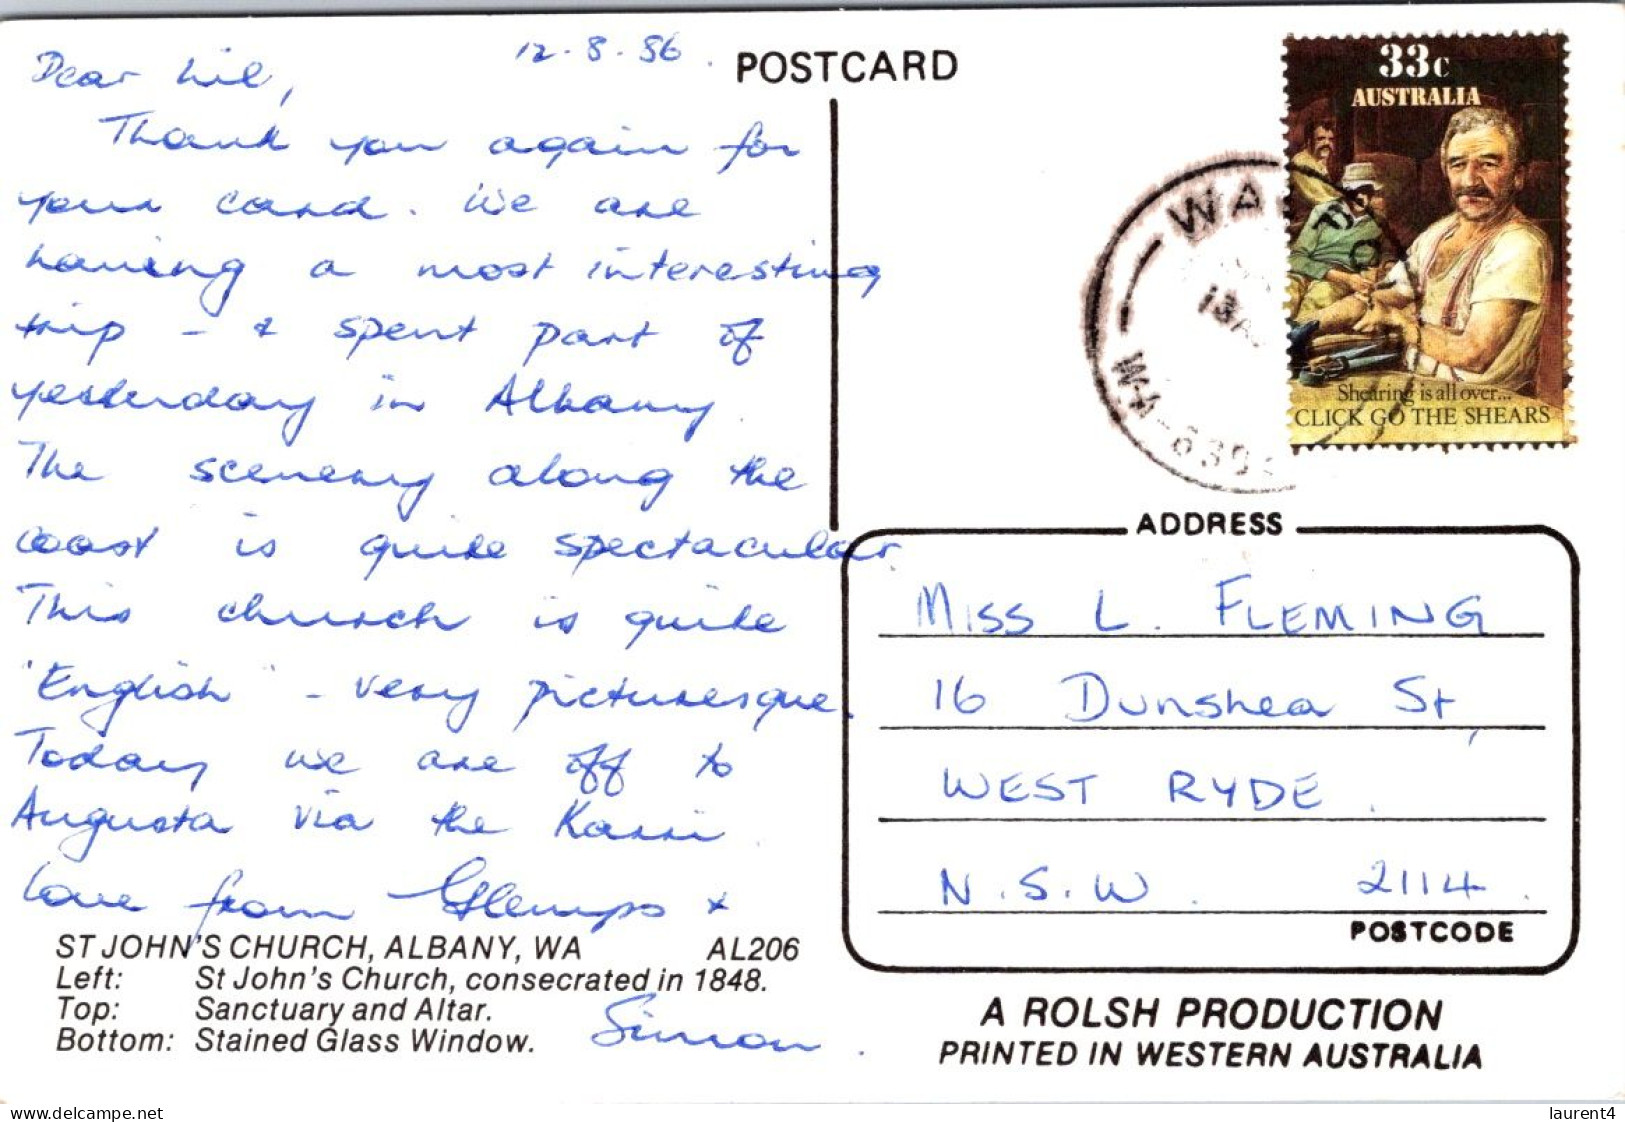 12.8.86.
Dear Lil,
Thank you again for
your card. We are
having a most interesting
trip - & spent part of
yesterday in Albany.
The scenery along the
coast is quite spectacular.
This church is quite
"English" - very picturesque.
Today we are off to
Augusta via the Karri.
Love from
x
Simon.
ST JOHN'S CHURCH, ALBANY, WA AL206
Left: St John's Church, consecrated in 1848.
Top: Sanctuary and Altar.
Bottom: Stained Glass Window.
POSTCARD
33c
AUSTRALIA
Shearing is all over...
CLICK GO THE SHEARS
ADDRESS
MISS L. FLEMING
16 Dunshea St,
WEST RYDE.
N.S.W. 2114.
POSTCODE
A ROLSH PRODUCTION
PRINTED IN WESTERN AUSTRALIA
www.delcampe.net
laurent4